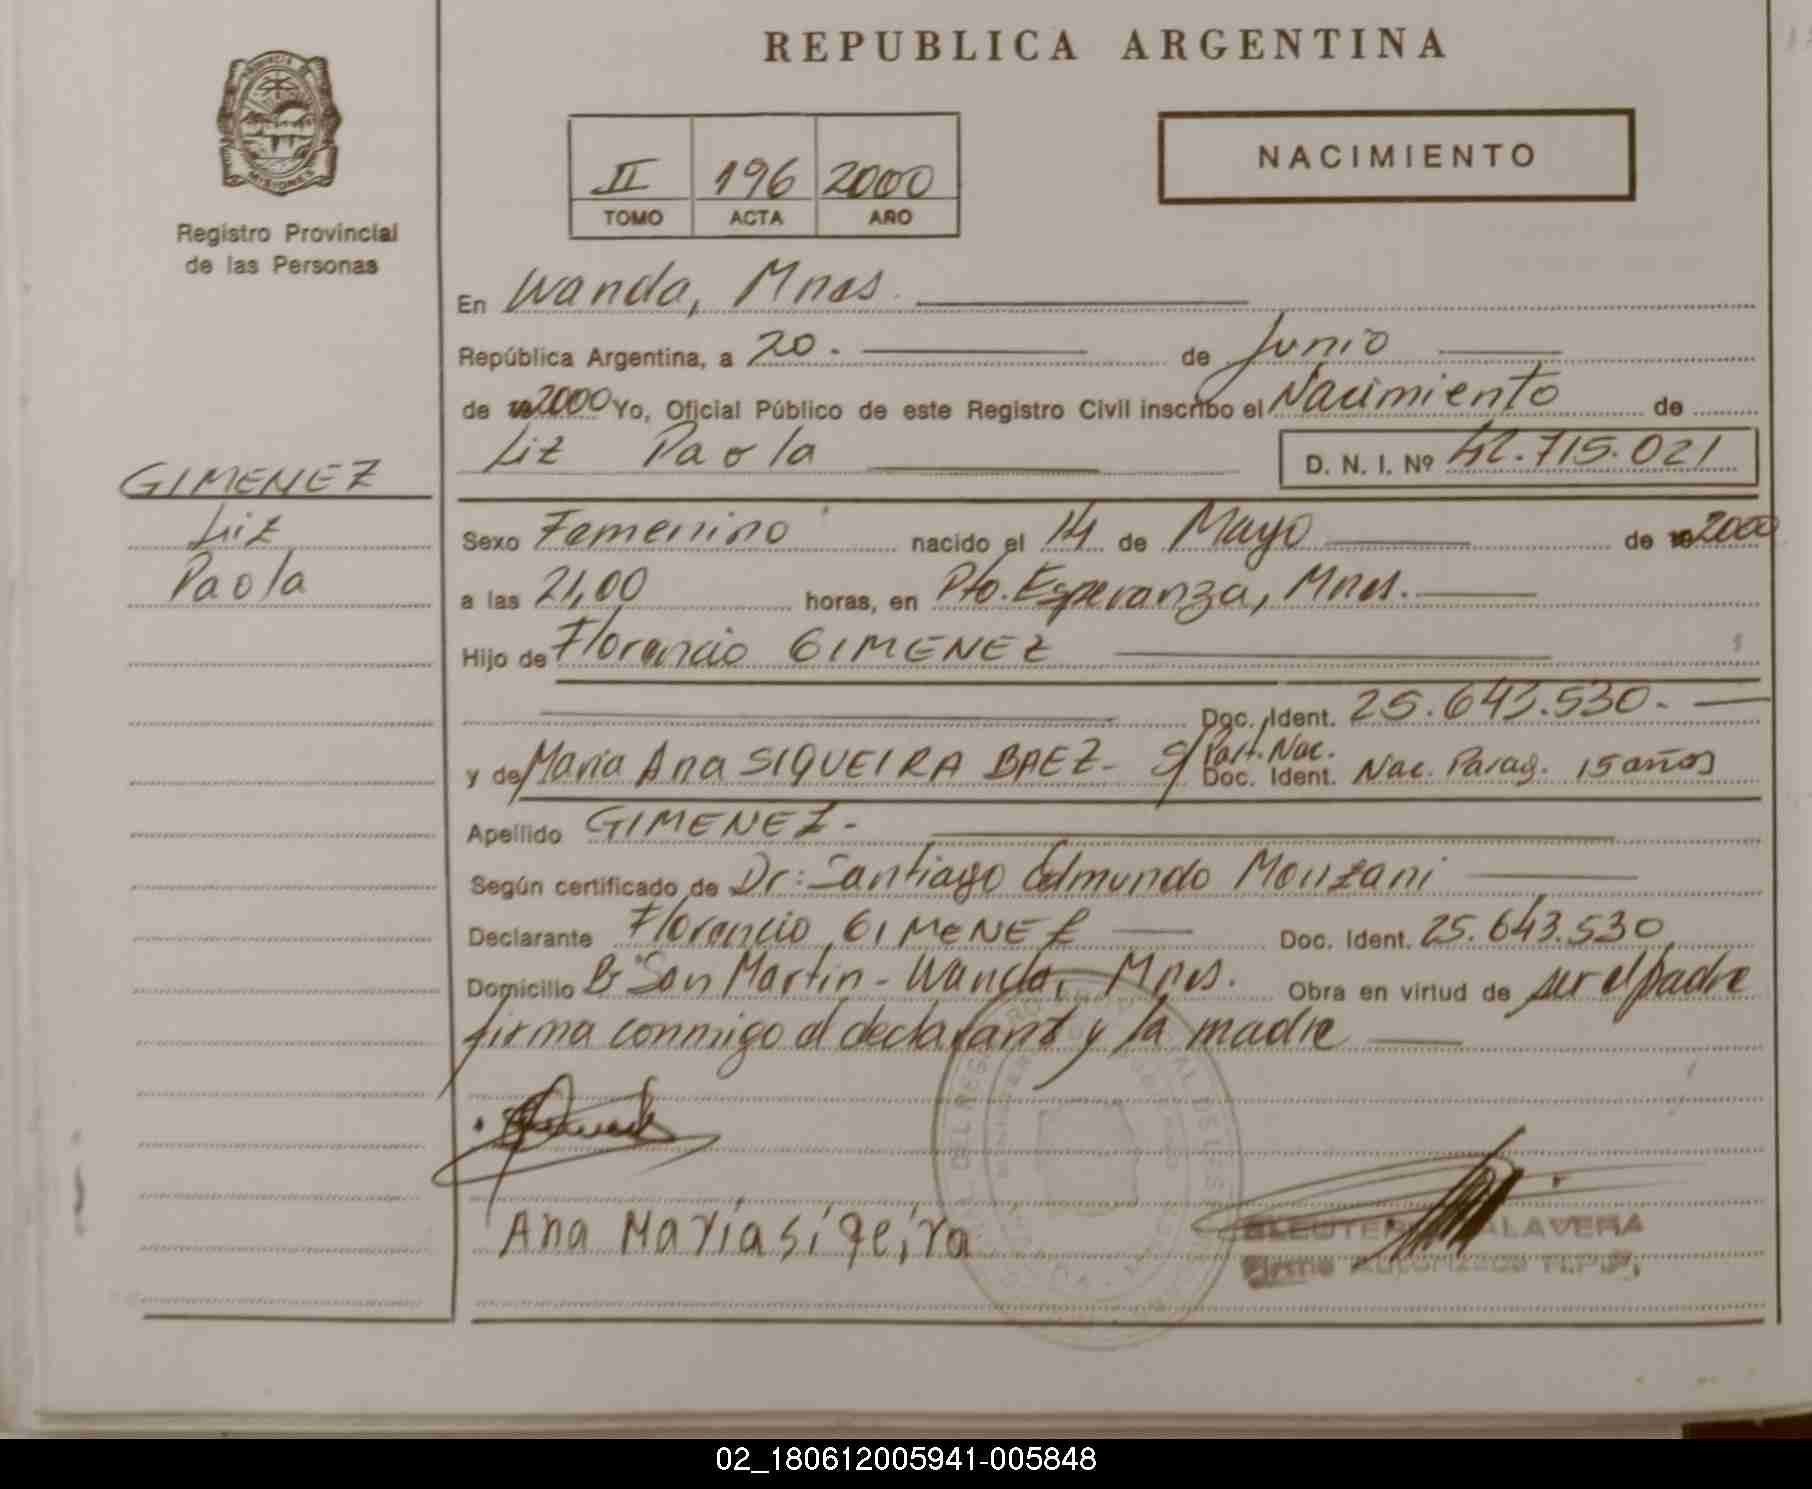 REPUBLICA ARGENTINA
PROVINCIA DE
MISIONES
Registro Provincial
de las Personas
II 196 2000
TOMO ACTA AÑO
NACIMIENTO
En Wanda, Mnes.
República Argentina, a 20. de Junio
de 2000 Yo, Oficial Público de este Registro Civil inscribo el Nacimiento de
Liz Paola D. N. I. Nº 42.715.021
GIMENEZ
Liz
Paola
Sexo Femenino nacido el 14 de Mayo de 2000
a las 21,00 horas, en Pto. Esperanza, Mnes.
Hijo de Florencio GIMENEZ
Doc. Ident. 25.643.530.
y de Maria Ana SIQUEIRA BAEZ- S/ Part. Nac.
Doc. Ident. Nac. Parag. 15 años
Apellido GIMENEZ-
Según certificado de Dr: Santiago Edmundo Monzani
Declarante Florencio GIMENEZ Doc. Ident. 25.643.530
Domicilio Bº San Martin - Wanda, Mnes. Obra en virtud de ser el padre
firma conmigo el declarant y la madre
Ana María síqeira
ELEUTERIO TALAVERA
Firma Autorizada R.P.P.
02_180612005941-005848